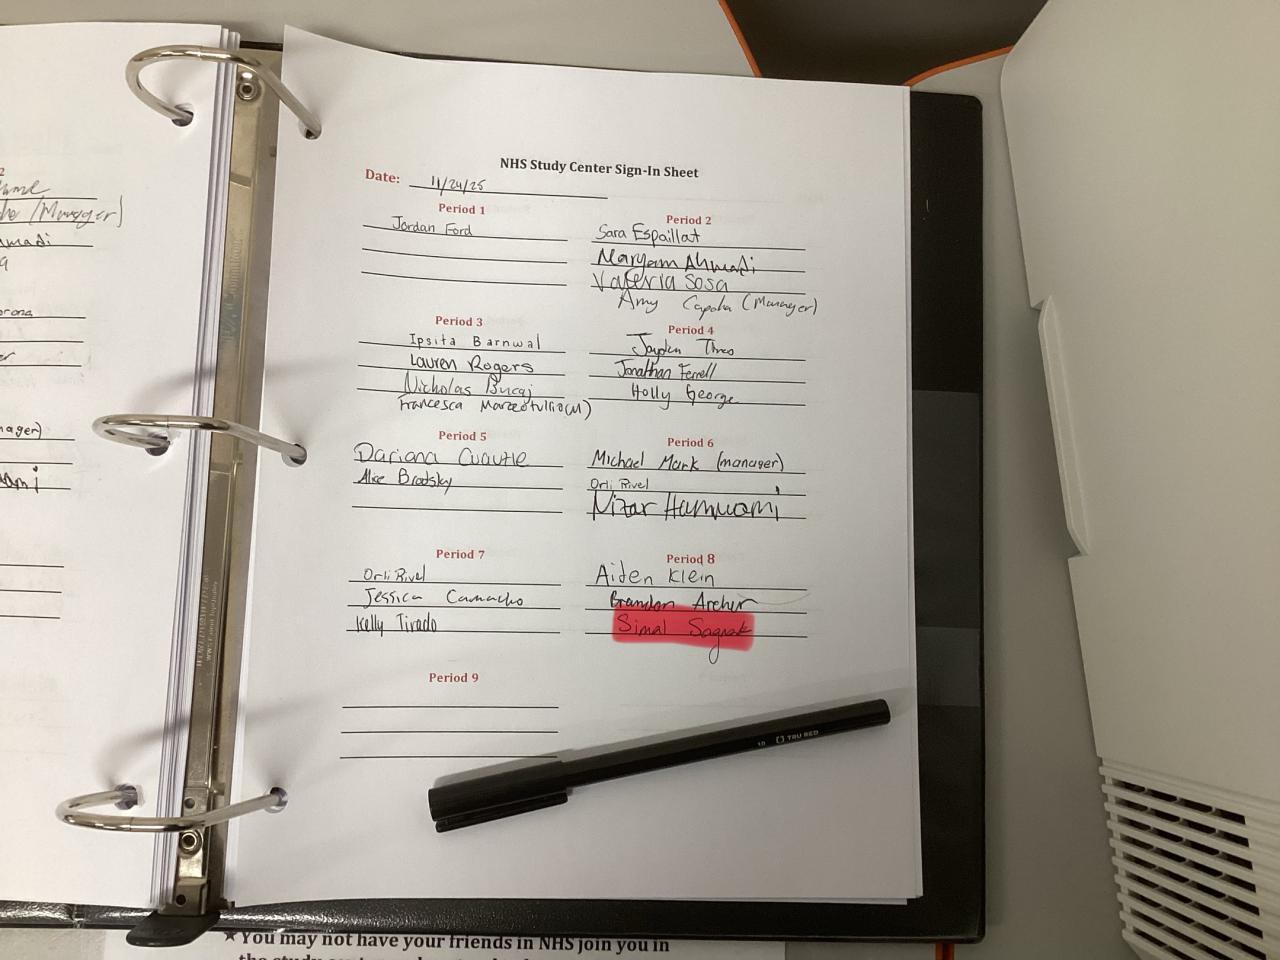 NHS Study Center Sign-In Sheet
Date: 11/24/25
Period 1
Jordan Ford
Period 2
Sara Espaillat
Maryam Ahmadi
Valeria Sosa
Amy (Manager)
Period 3
Ipsita Barnwal
Lauren Rogers
Nicholas Bucaj
Francesca Marzeotullio(M)
Period 4
Jayden
Jonathan Ferrell
Holly George
Period 5
Dariana Cuautle
Alice Brodsky
Period 6
Michael Mark (manager)
Orli Rivel
Nizar Hammami
Period 7
Orli Rivel
Jessica Camacho
Kelly Tirado
Period 8
Aiden Klein
Brandon Archer
Simal Sagnak
Period 9
TRU RED
(Manager)
★You may not have your friends in NHS join you in